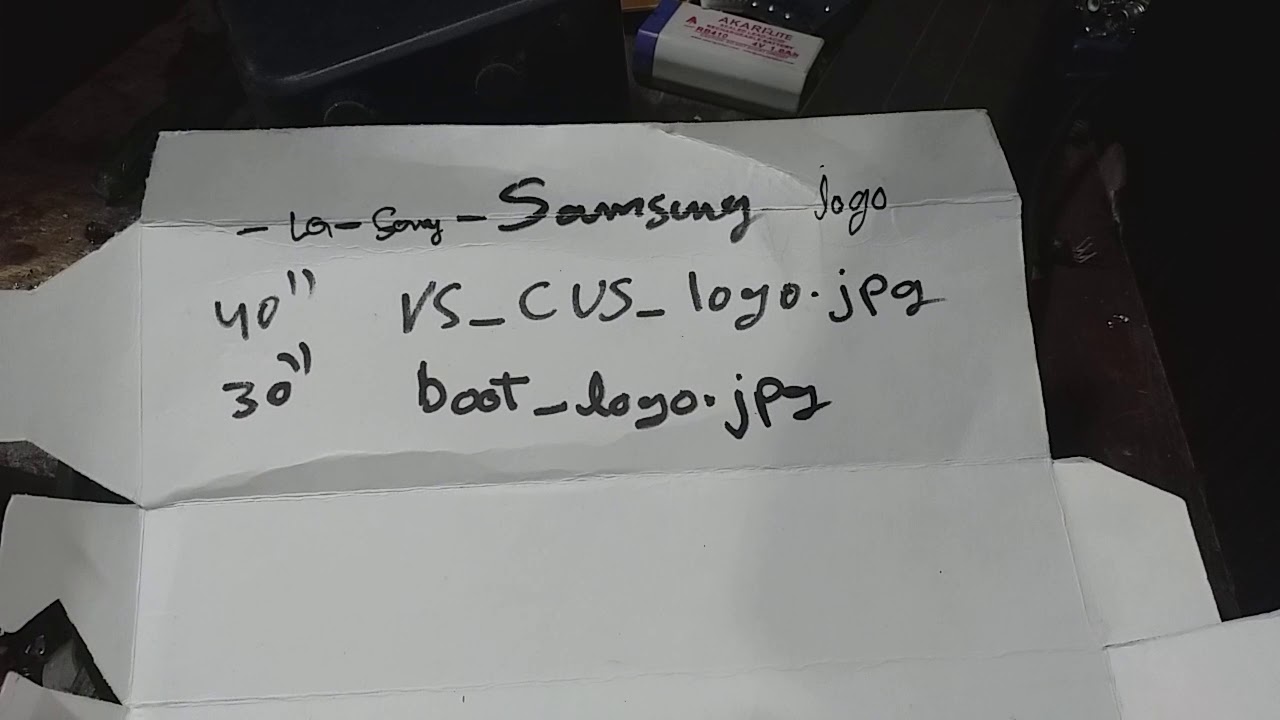 AKARI LITE
RB410 4V 1.0Ah
- LG - Sony - Samsung logo
40" VS_CUS_logo.jpg
30" boot_logo.jpg